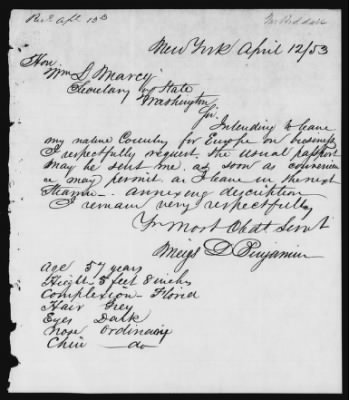 Recd Apl 13th
New York April 12/53
Hon.
Wm L Marcy
Secretary of State
Washington
Sir
Intending to leave
my native Country for Europe on business
I respectfully request the usual passport
may be sent me, as soon as convenien
ce may permit as I leave in the next
Steamer - annexing description
I remain very respectfully
Yr Most Obdt Servt
Meigs D Benjamin
Age 57 years
Hight - 5 feet 8 inches
Complexion - Florid
Hair Grey
Eyes Dark
Nose Ordinary
Chin do